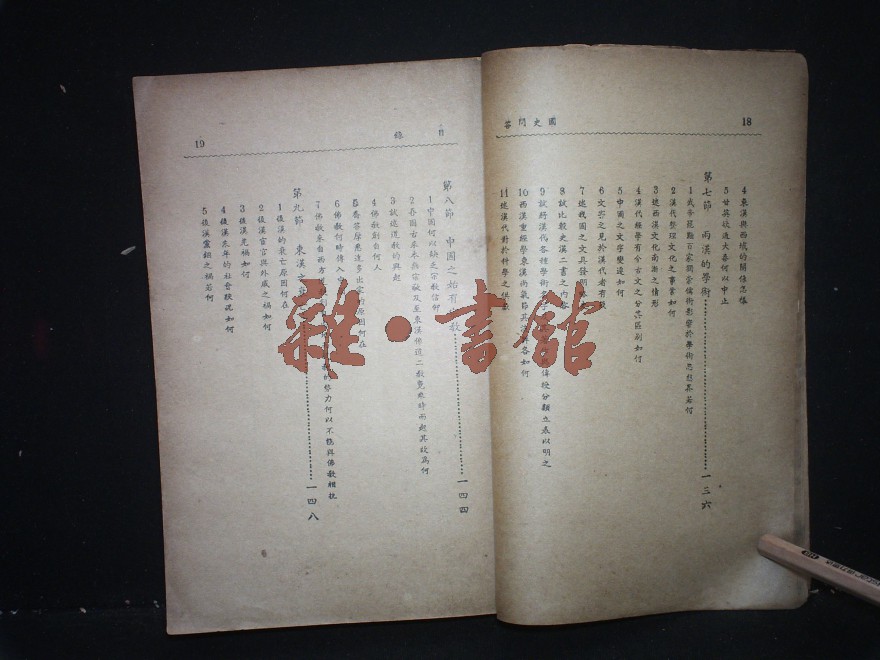 18
國史問答
4 東漢與西域的關係怎樣
5 甘英欲達大秦何以中止
第七節 兩漢的學術 一三六
1 武帝罷黜百家獨崇儒術影響於學術思想界若何
2 漢代整理文化之事業如何
3 述西漢文化南漸之情形
4 漢代經學有今古文之分其區別如何
5 中國之文字變遷如何
6 文字之見於漢代者有
7 述我國之文具發明
8 試比較史漢二書之內容
9 試將漢代各種學術 偉枝分類立表以明之
10 西漢重經學東漢尚氣節其 各如何
11 述漢代對於科學之
目錄
19
第八節 中國之始有 教 一四四
1 中國何以缺乏宗教信仰
2 吾國古來本無宗教及至東漢佛道二教竟同時而起其故為何
3 試述道教的興起
4 佛教創自何人
5 喬答摩悉達多出家 原因何在
6 佛教何時傳入中
7 佛教來自西方 的勢力何以不能與佛教相抗
第九節 東漢之 一四八
1 後漢的衰亡原因何在
2 後漢宦官與外戚之禍如何
3 後漢羌禍如何
4 後漢末年的社會狀況如何
5 後漢黨錮之禍若何
雜·書館